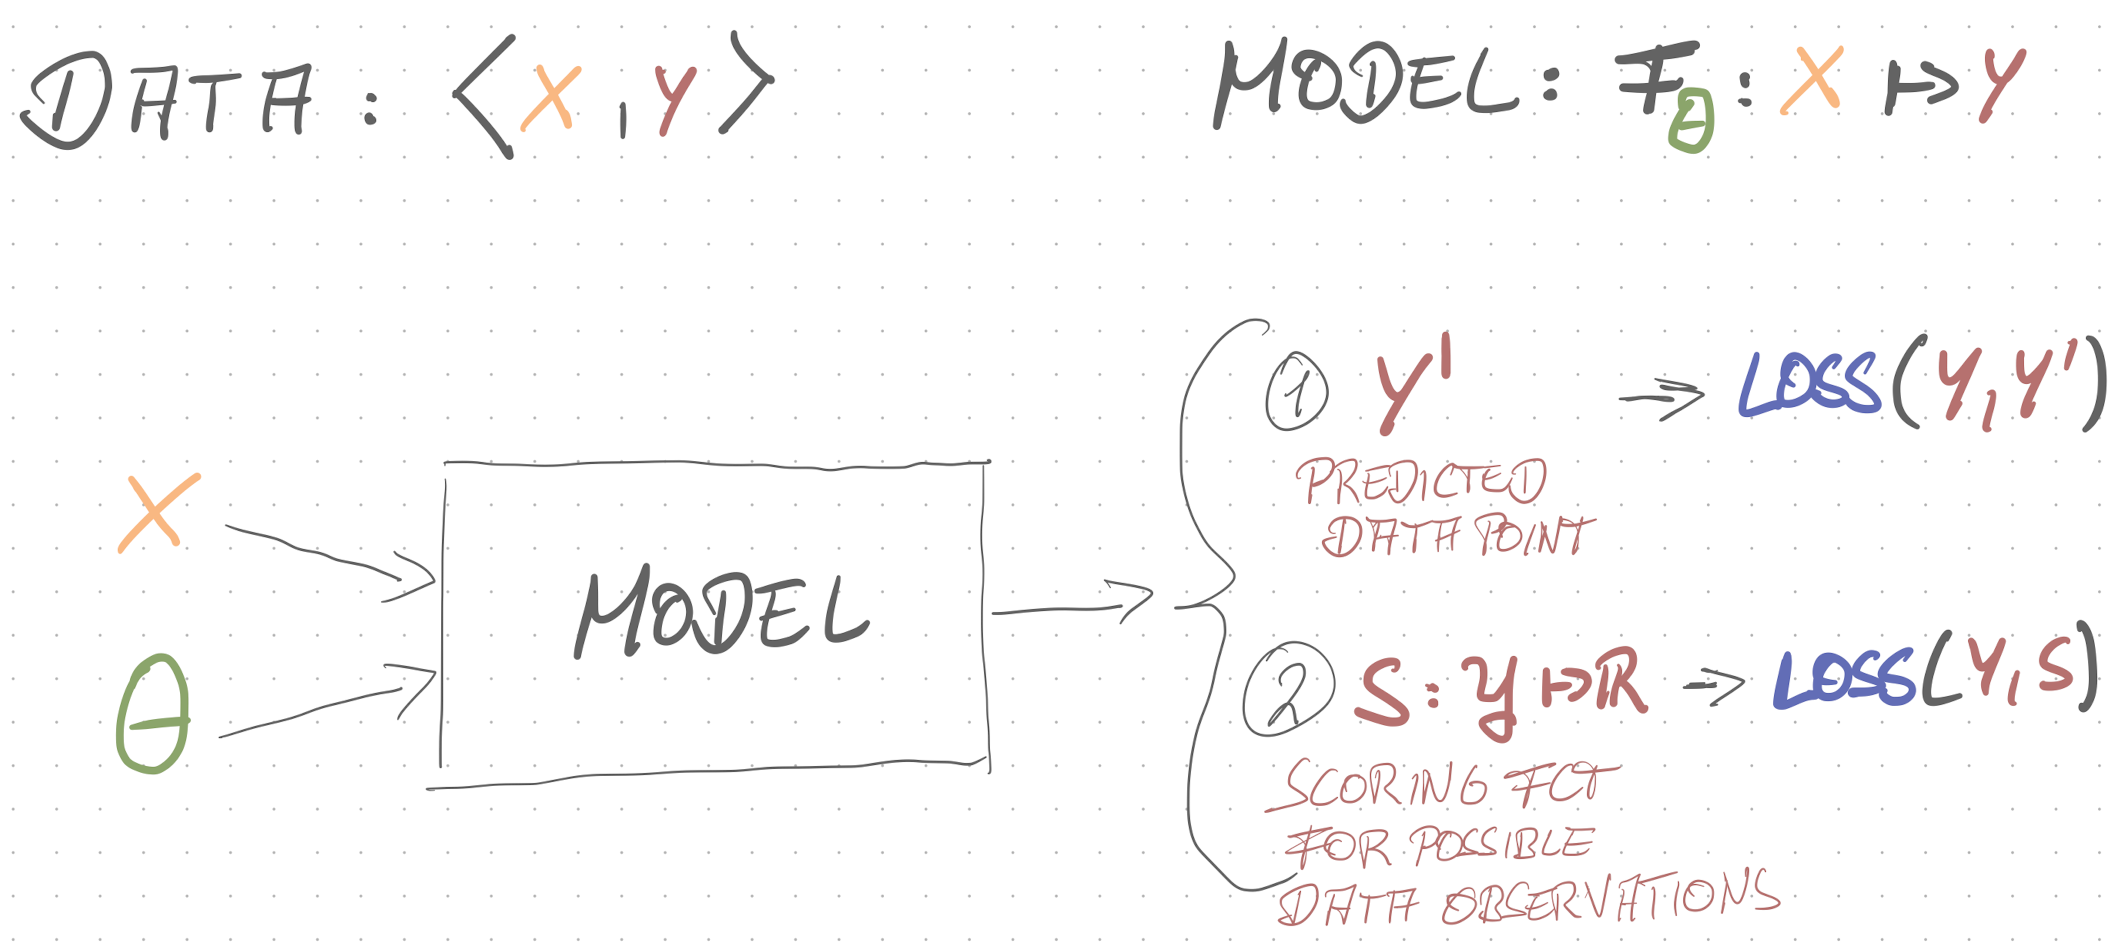 DATA: <X, Y>
MODEL: F_θ: X ↦ Y
X
θ
MODEL
① Y' → LOSS(Y, Y')
PREDICTED
DATA POINT
② S: Y ↦ ℝ → LOSS(Y, S)
SCORING FCT
FOR POSSIBLE
DATA OBSERVATIONS